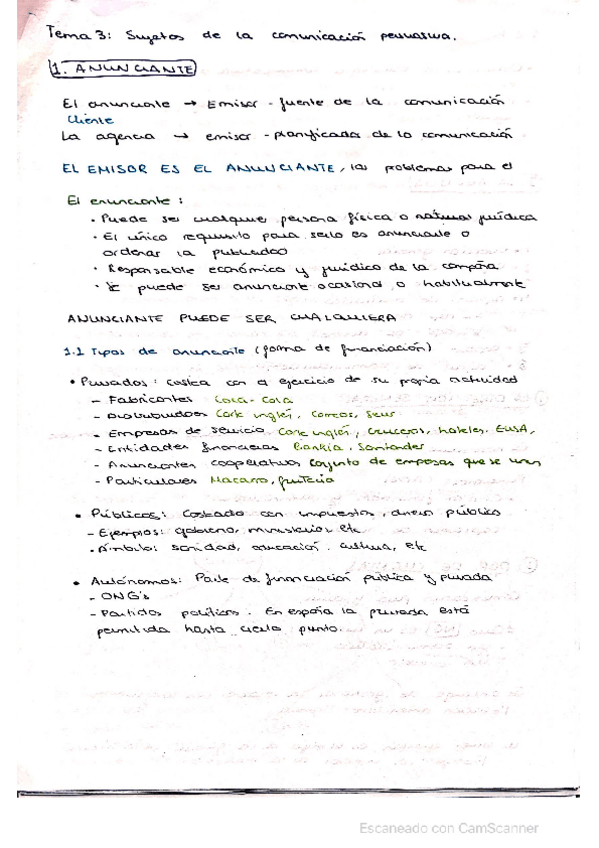 Tema 3: Sujetos de la comunicación persuasiva.
1. ANUNCIANTE
El anunciante → Emisor - fuente de la comunicación
Cliente
La agencia → emisor - planificador de la comunicación
EL EMISOR ES EL ANUNCIANTE, los problemas para el
El anunciante:
• Puede ser cualquier persona física o natural jurídica
• El único requisito para serlo es anunciarse o
ordenar la publicidad
• Responsable económico y jurídico de la campaña
• puede ser anunciante ocasional o habitualmente
ANUNCIANTE PUEDE SER CUALQUIERA
1.1 Tipos de anunciante (forma de financiación)
• Privados: costea con el ejercicio de su propia actividad
- Fabricantes Coca-Cola
- Distribuidores Corte inglés, Correos, Seur
- Empresas de servicio Corte inglés, cruceros, hoteles,
- Entidades financieras Bankia, Santander
- Anunciantes cooperativos conjunto de empresas que se unen
- Particulares frutería
• Públicos: Costeado con impuestos, dinero público
- Ejemplos: gobierno, ministerios etc
• Ámbito: sanidad, educación, cultura, etc
• Autónomos: Parte de financiación pública y privada
- ONG's
- Partidos políticos. En españa la privada está
permitida hasta cierto punto.
Escaneado con CamScanner